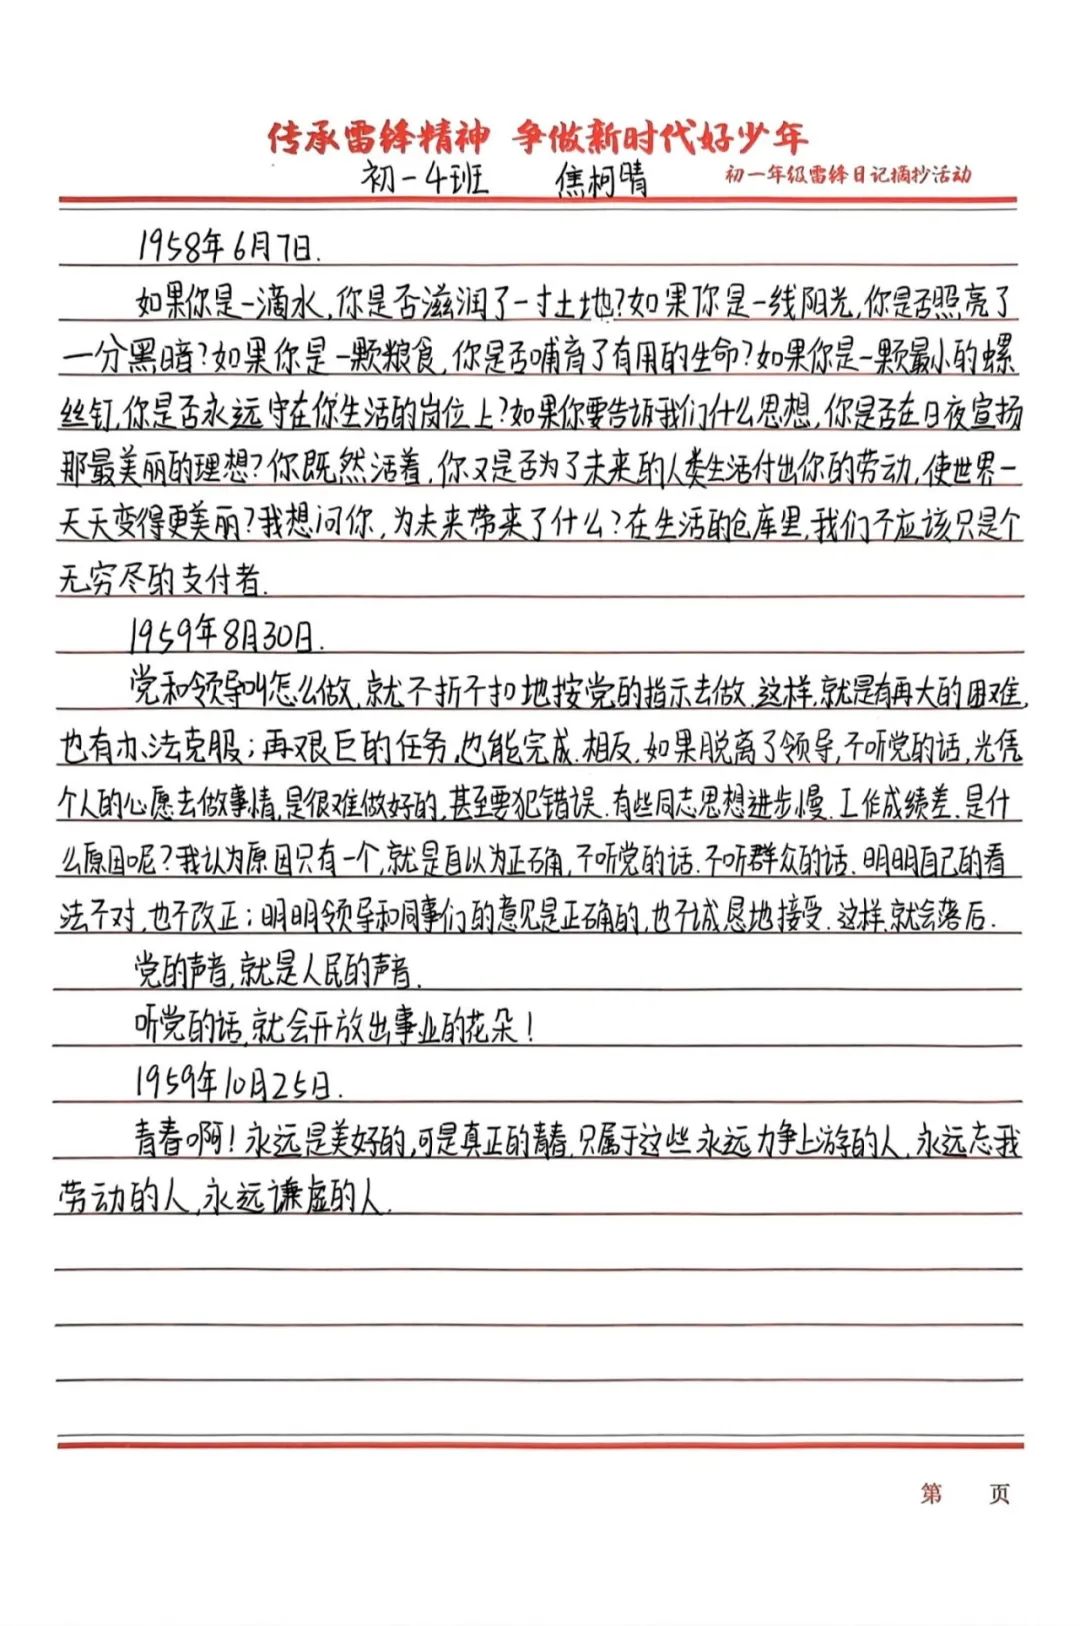 传承雷锋精神 争做新时代好少年
初一4班 焦柯晴 初一年级雷锋日记摘抄活动
1958年6月7日.
如果你是一滴水,你是否滋润了一寸土地?如果你是一线阳光,你是否照亮了
一分黑暗?如果你是一颗粮食,你是否哺育了有用的生命?如果你是一颗最小的螺
丝钉,你是否永远守在你生活的岗位上?如果你要告诉我们什么思想,你是否在日夜宣扬
那最美丽的理想?你既然活着,你又是否为了未来的人类生活付出你的劳动,使世界一
天天变得更美丽?我想问你,为未来带来了什么?在生活的仓库里,我们不应该只是个
无穷尽的支付者.
1959年8月30日.
党和领导叫怎么做,就不折不扣地按党的指示去做.这样,就是有再大的困难,
也有办法克服;再艰巨的任务,也能完成.相反,如果脱离了领导,不听党的话,光凭
个人的心愿去做事情,是很难做好的,甚至要犯错误.有些同志思想进步慢.工作成绩差.是什
么原因呢?我认为原因只有一个,就是自以为正确,不听党的话.不听群众的话.明明自己的看
法不对,也不改正;明明领导和同事们的意见是正确的,也不诚恳地接受.这样,就会落后.
党的声音,就是人民的声音.
听党的话,就会开放出事业的花朵!
1959年10月25日.
青春啊!永远是美好的,可是真正的青春,只属于这些永远力争上游的人,永远忘我
劳动的人,永远谦虚的人.
第 页